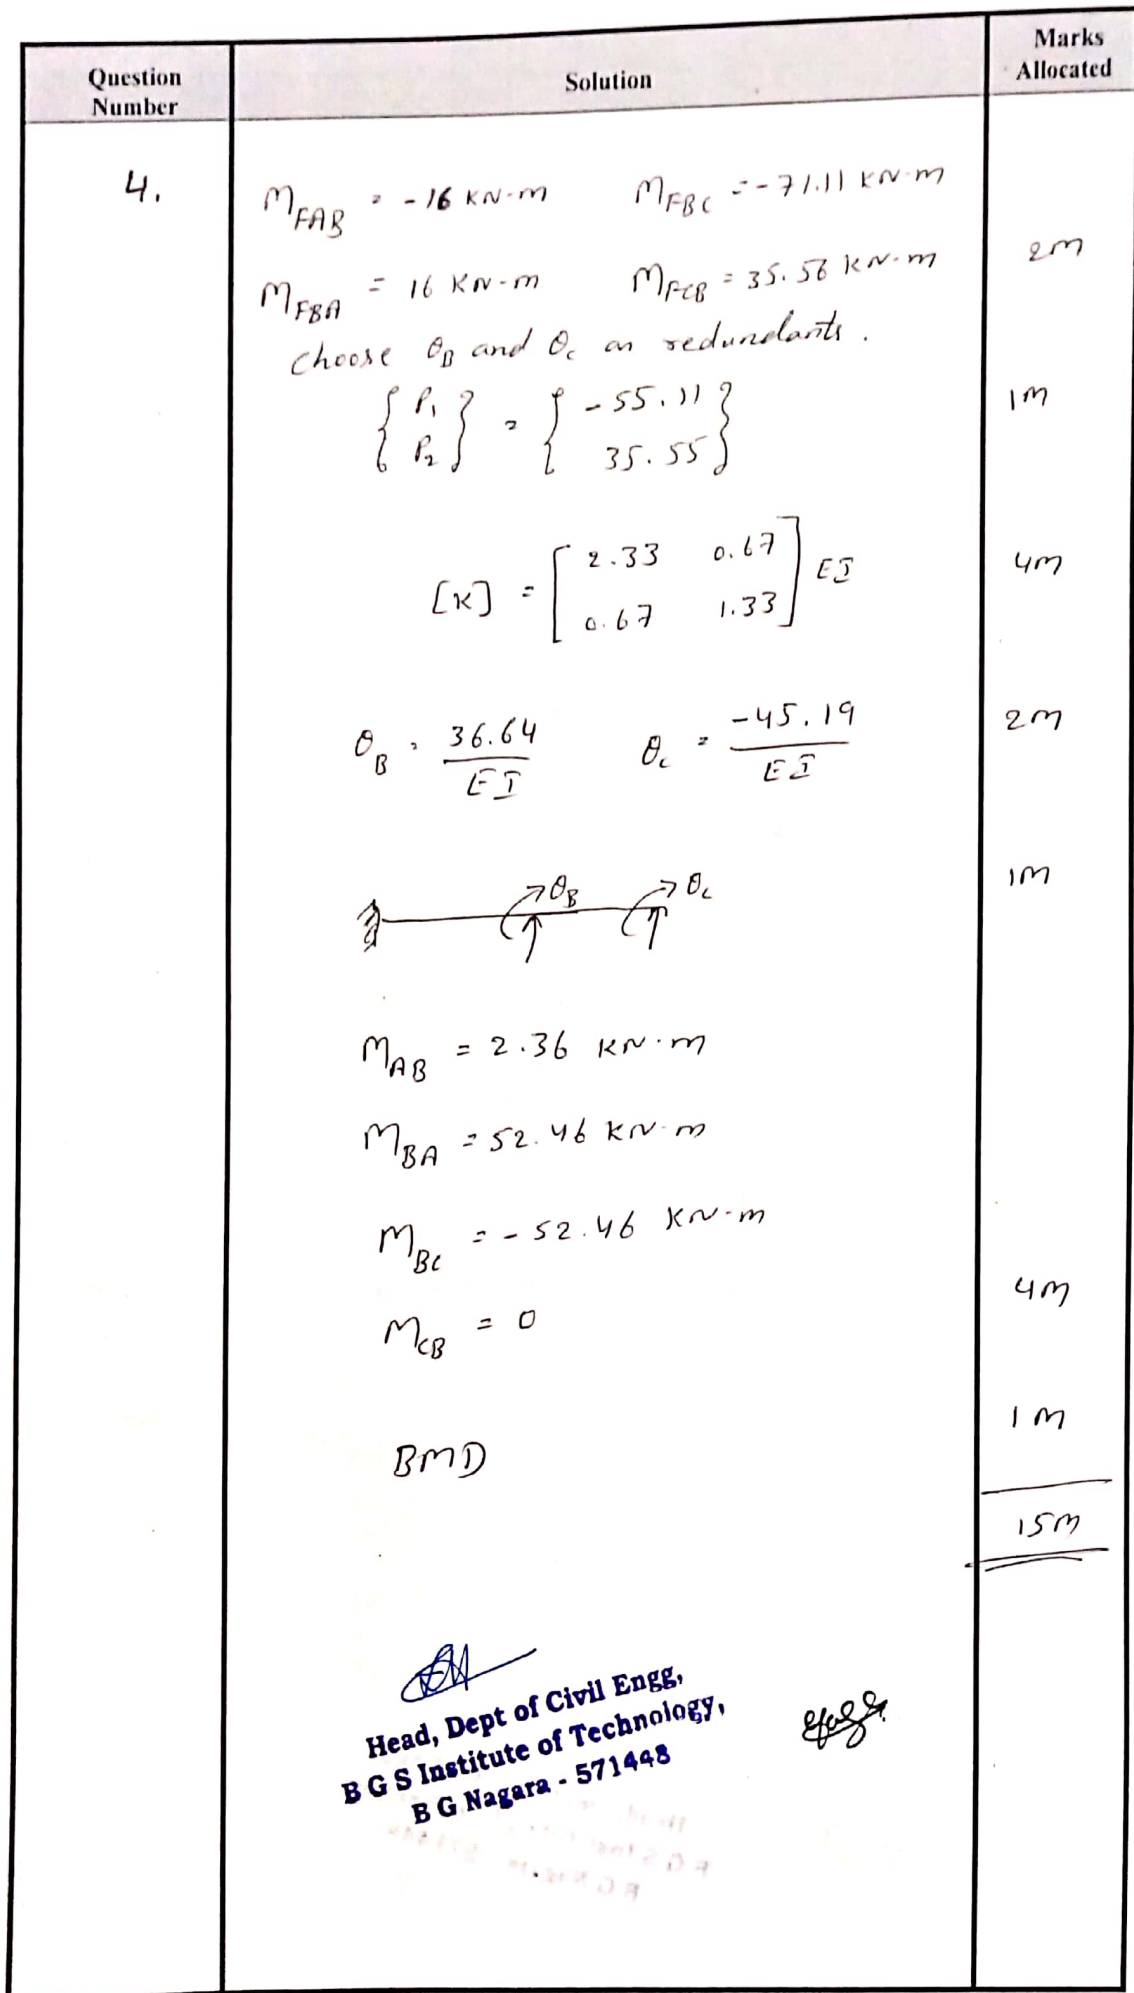 Question Number
Solution
Marks Allocated
4.
M_FAB = -16 KN-m    M_FBC = -71.11 KN-m
M_FBA = 16 KN-m    M_FCB = 35.56 KN-m    2M
choose θ_B and θ_c as redundants.
{P_1 P_2} = {-55.11 35.55}    1M
[K] = [2.33 0.67 0.67 1.33] EI    4M
θ_B = 36.64/EI    θ_c = -45.19/EI    2M
θ_B    θ_c    1M
M_AB = 2.36 KN.m
M_BA = 52.46 KN-m
M_BC = -52.46 KN-m
M_CB = 0    4M
BMD    1M
15M
Head, Dept of Civil Engg,
B G S Institute of Technology,
B G Nagara - 571448